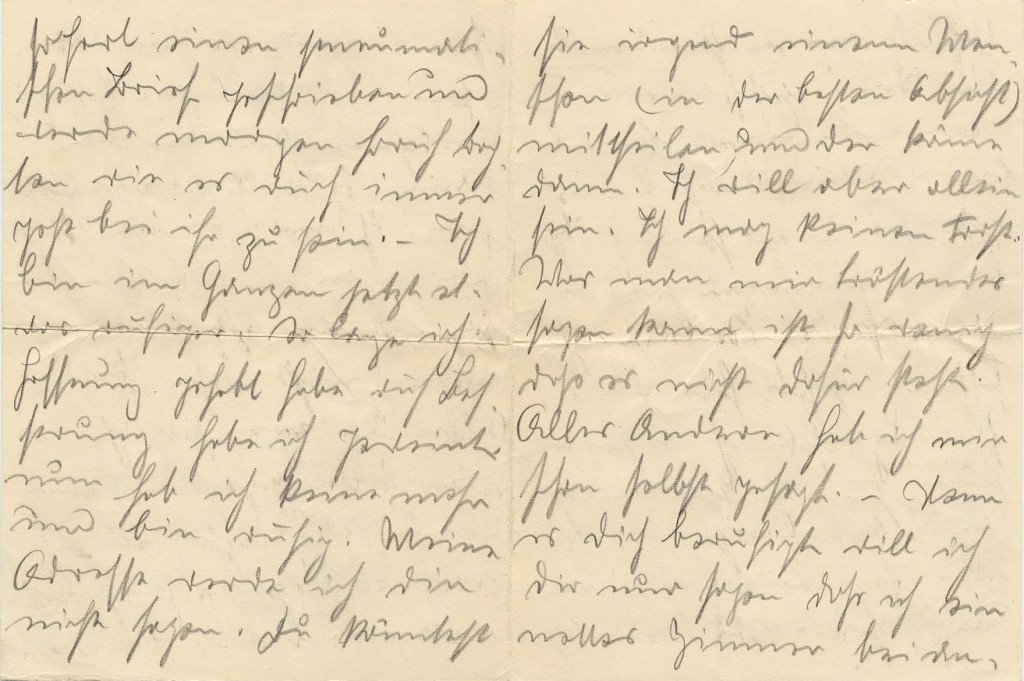 sofort einen pneumati-
schen Brief geschrieben und
werde morgen hinaus
wie es Dich immer
bei ihr zu sein. – Ich
bin im Ganzen jetzt et-
was ruhiger. So lange ich
Hoffnung gehabt habe auf Bes-
serung habe ich geweint
nun hab ich keine mehr
und bin ruhig. Meine
Adresse werde ich Dir
nicht sagen. Du könntest
sie irgend einem Men-
schen (in der besten Absicht)
mittheilen und der käme
dann. Ich will aber allein
sein. Ich mag keinen Trost.
Was man mir tröstendes
sagen kann ist so wenig
dass es nicht dafür steht.
Alles Andere hab ich mir
schon selbst gesagt. – Wenn
es Dich beruhigt will ich
Dir nur sagen dass ich ein
nettes Zimmer bei an-